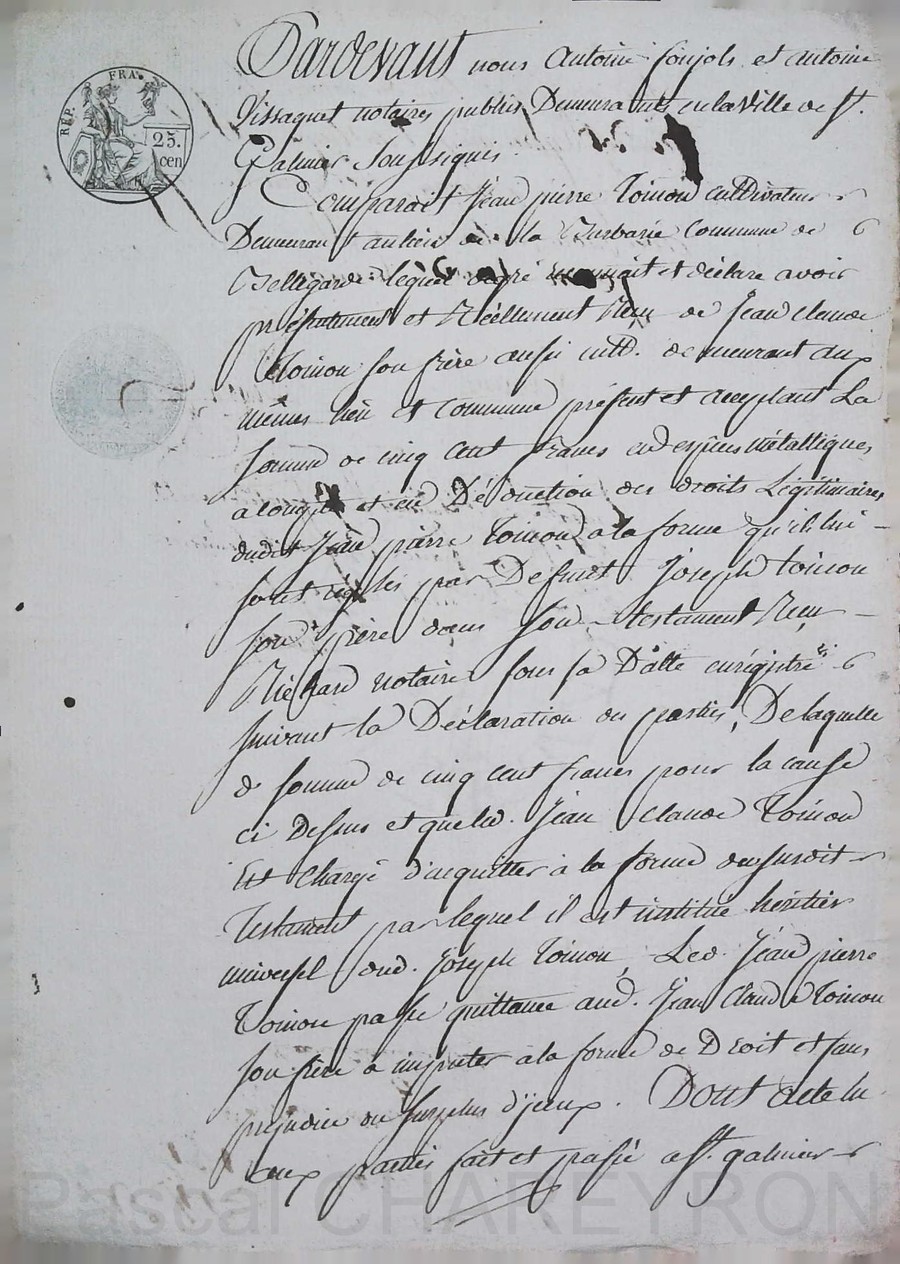 REP. FRA.
25.
cen
Pardevant nous Antoine Soujols et antoine
Vissaguet notaires publics Demeurants en la Ville de St.
Galmier Soussignés
Comparait Jean pierre Toinon cultivateur
Demeurant au lieu de la Barbarie Commune de
Bellegarde lequel de gré reconnait et déclare avoir
présentement et Réellement Reçu de Jean claude
Toinon son frère aussi cultr. demeurant aux
mêmes lieu et commune présent et acceptant La
somme de cinq cent francs en espèces métalliques
a compte et en Déduction des droits Légitimaires
dudit Jean pierre Toinon a la forme qu'ils lui
sont réglés par Defunt Joseph toinon
son père dans son testament Reçu
Richard notaire sous sa Datte enrégistré
suivant la Déclaration des parties, De laquelle
de somme de cinq cent francs pour la cause
ci Dessus et que led. Jean Claude Toinon
Est Chargé d'acquitter à la forme du susdit
Testament par lequel il est institué héritier
universel dud. Joseph Toinon, Led. Jean pierre
Toinon passe quittance aud. Jean Claude Toinon
son frère à imputer a la forme de Droit et sans
préjudice du surplus d'iceux. Dont acte lu
aux parties fait et passé a St. galmier
Pascal CHAREYRON